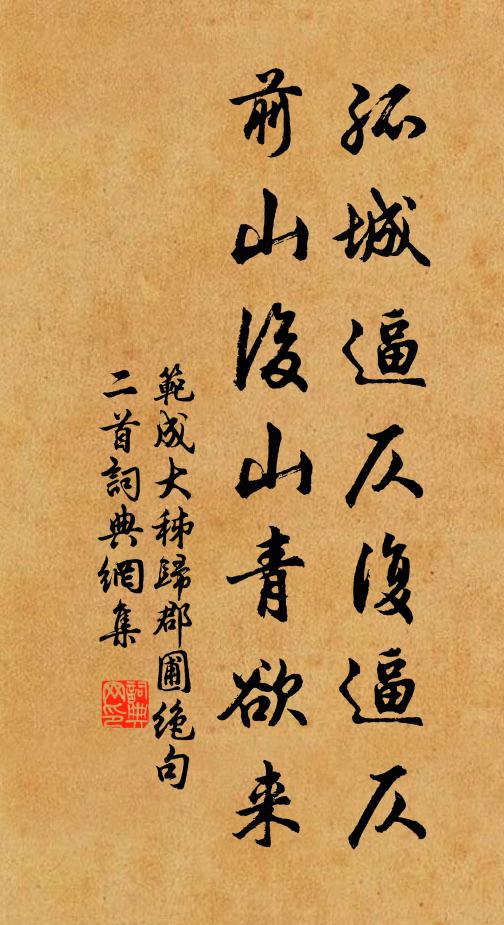 孤城逼仄復逼仄
前山後山青欲来
範成大秭歸郡圃絶句
二首詞典網集
詞典
网印